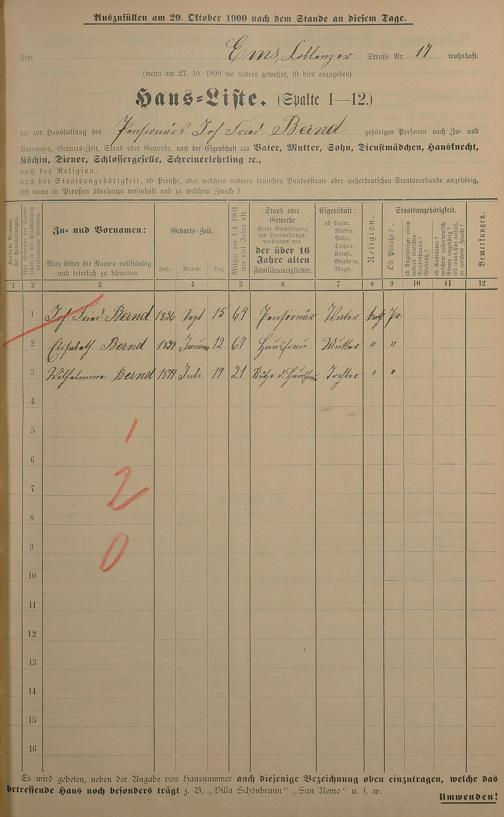 Auszufüllen am 29. Oktober 1900 nach dem Stande an diesem Tage.
Jetzt Ems, Coblenzer Straße Nr. 17 wohnhaft.
(wenn am 27. 10. 1899 wo anders gewohnt, ist dies anzugeben)
Haus=Liste. (Spalte 1—12.)
der zur Haushaltung des Pensionärs Jos Fried Bernd gehörigen Personen nach Zu- und
Vornamen, Geburts-Zeit, Stand oder Gewerbe, nach der Eigenschaft als Vater, Mutter, Sohn, Dienstmädchen, Hausknecht,
Köchin, Diener, Schlossergeselle, Schreinerlehrling ꝛc.,
nach der Religion,
nach der Staatsangehörigkeit, ob Preuße, oder welchem anderen deutschen Bundesstaate oder außerdeutschen Staatsverbande angehörig,
bis wann in Preußen überhaupt wohnhaft und zu welchem Zwecke?
Zu- und Vornamen:
Man bittet die Namen vollständig
und leserlich zu schreiben.
Geburts-Zeit.
Jahr. Monat. Tag.
Mithin am 1.4. 1901
wie viel Jahre alt.
Stand oder
Gewerbe
der über 16
Jahre alten
Familienmitglieder.
Eigenschaft:
ob Vater,
Mutter,
Sohn,
Tochter,
Knecht,
Geselle u.
Magd.
Religion.
Staatsangehörigkeit.
Ob Preuße?
Bemerkungen.
1 2 3 4 5 6 7 8 9 10 11 12
1 Jos Fried Bernd 1836 Sept 15 64 Pensionär Vater kath Pr.
2 Elisabeth Bernd 12 64 Hausfrau Mutter " "
3 Wilhelmine Bernd Juli 19 21 Tochter " "
4
5
6
7
8
9
10
11
12
13
14
15
16
1
2
0
Es wird gebeten, neben der Angabe von Hausnummer auch diejenige Bezeichnung oben einzutragen, welche das
betreffende Haus noch besonders trägt z. B. „Villa Schönbrunn" „San Remo" u. s. w.
Umwenden!